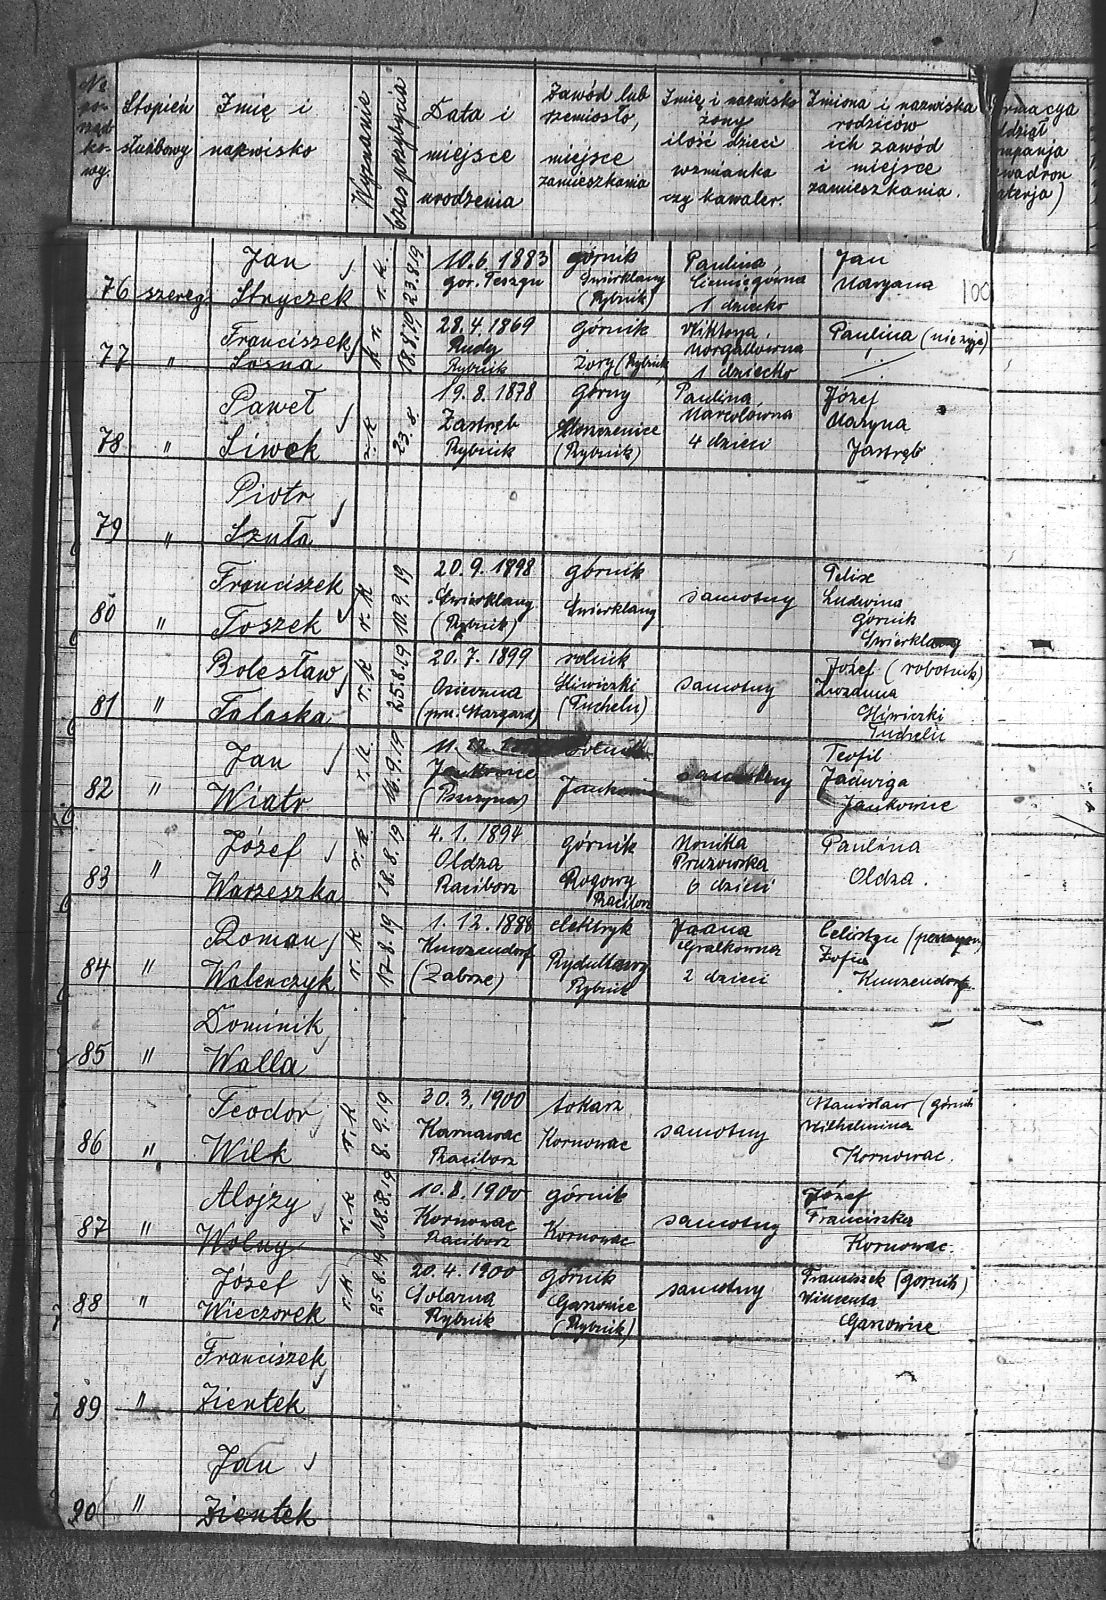 No porządkowy.
Stopień służbowy
Imię i nazwisko
Wyznanie
Czas przybycia
Data i miejsce urodzenia
Zawód lub rzemiosło, miejsce zamieszkania
Imię i nazwisko żony ilość dzieci wzmianka czy kawaler.
Imiona i nazwiska rodziców ich zawód i miejsce zamieszkania.
76 szereg. Jan Stryczek r.k. 23.8.19
10.6.1883
górnik Świerklany (Rybnik)
Paulina 1 dziecko
Jan Maryana
100
77 " Franciszek Sosna r.k.
28.4.1869 Rudy Rybnik
górnik Żory (Rybnik
Wiktorya 1 dziecko
Paulina (nie żyje)
78 " Paweł Siwek r.k. 23.8.
19.8.1878 Zastręb Rybnik
górny (Rybnik)
Paulina 4 dzieci
Józef Maryna Jastręb
79 " Piotr Szuła
80 " Franciszek Toszek r.k. 10.9.19
20.9.1898 Świerklany (Rybnik)
górnik Świerklany
samotny
Felix Ludwina górnik Świerklany
81 " Bolesław Talaska r.k. 25.8.19
20.7.1899 (pow. Stargard)
rolnik Śliwiczki (Tucheln)
samotny
Józef (robotnik) Zuzanna Śliwiczki Tucheln
82 " Jan Wiatr r.k. 16.9.19
Jankowice (Pszczyna)
samotny
Teofil Jadwiga Jankowice
83 " Józef Warzeszka r.k. 18.8.19
4.1.1894 Oldza Raciborz
górnik Rogowy Raciborz
Monika Pruzowska 6 dzieci
Paulina Oldza.
84 " Roman Walenczyk r.k. 17.8.19
1.12.1888 Kunzendorf (Zabrze)
elektryk Rydułtowy Rybnik
Joana Gralkowna 2 dzieci
Zofia Kunzendorf
85 " Dominik Walla
86 " Teodor Wilk r.k. 8.9.19
30.3.1900 Karnawac Raciborz
tokarz Kornowac
samotny
Stanisław (górnik Wilhelmina Kornowac.
87 " Alojzy Wolny r.k. 18.8.19
10.8.1900 Kornowac Raciborz
górnik Kornowac
samotny
Józef Franciszka Kornowac.
88 " Józef Wieczorek r.k. 25.8.19
20.4.1900 Solarnia Rybnik
górnik Gaszowice (Rybnik)
samotny
Franciszek (górnik) Wincenta Gaszowice
89 " Franciszek Zientek
90 " Jan Zientek